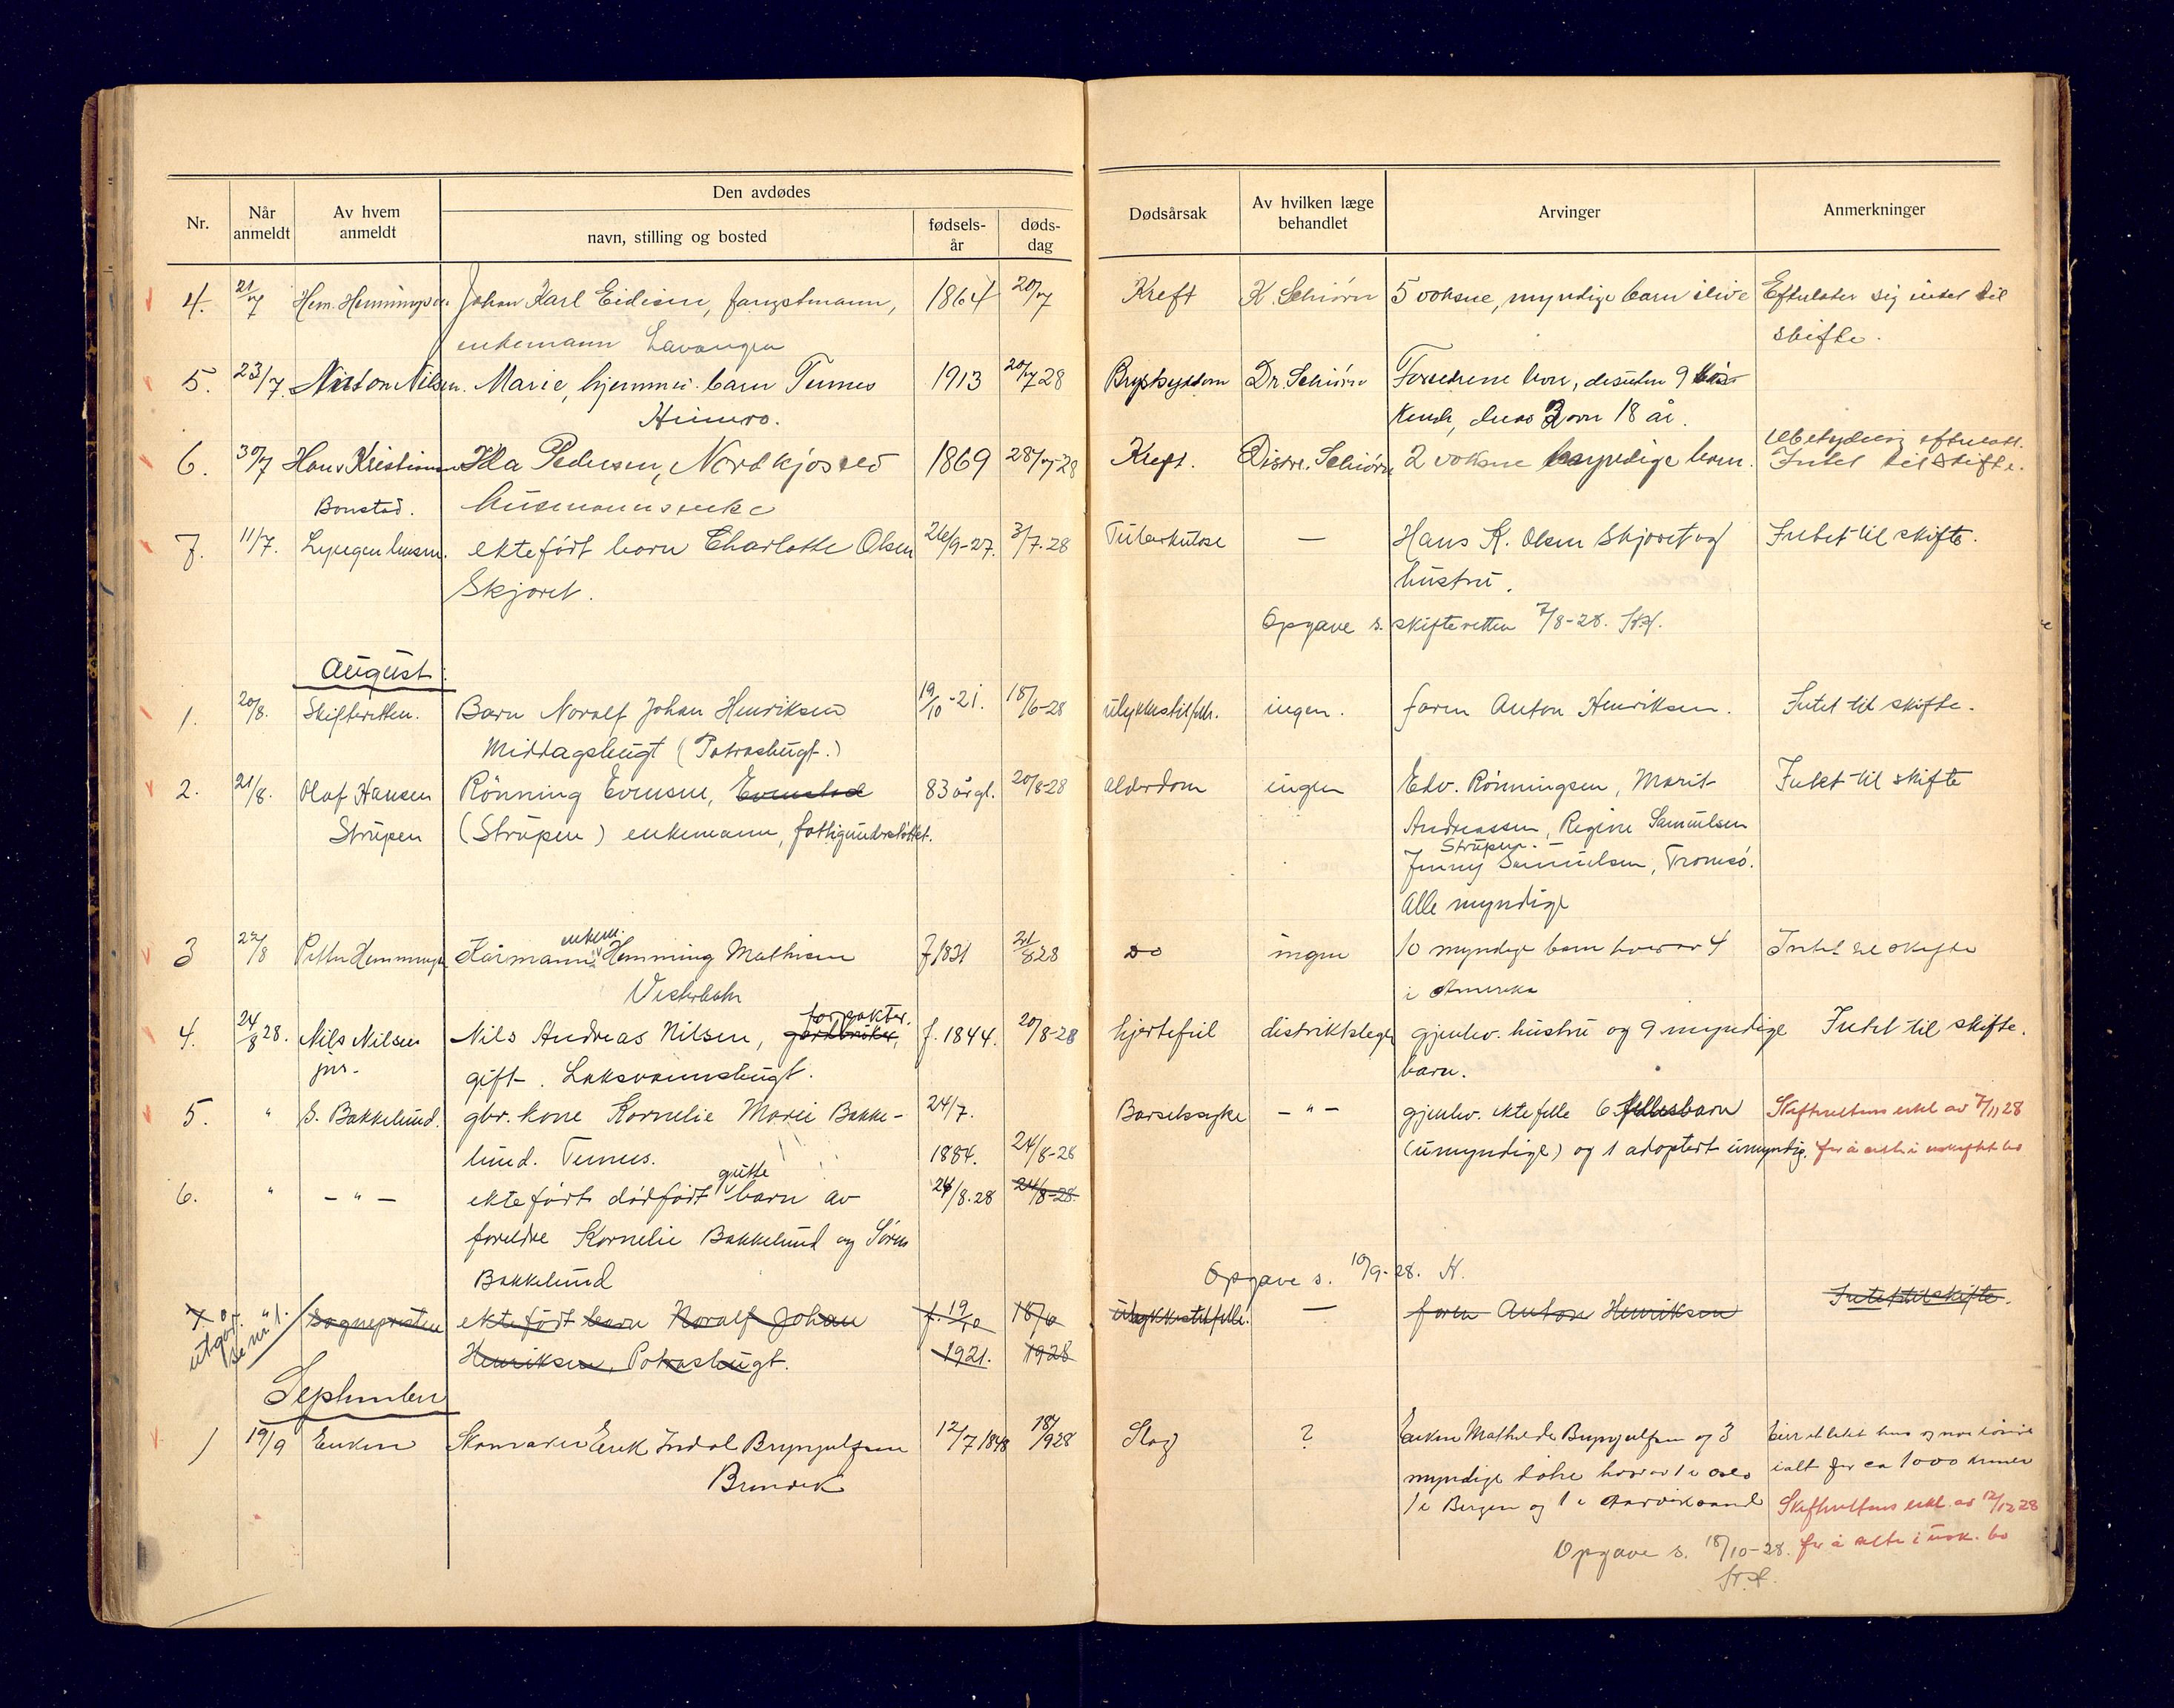 Nr.
Når anmeldt
Av hvem anmeldt
Den avdødes
navn, stilling og bosted
fødsels-år
døds-dag
Dødsårsak
Av hvilken læge behandlet
Arvinger
Anmerkninger
4. 21/7 Hem. Hemmingsen. Johan Karl Eidisen, fangstmann, 1864 20/7 Kreft K. Schiørn 5 voksne, myndige barn ilive Efterlater sig intet til
enkemann Lavangen skifte.
5. 23/7. Anton Nilsen. Marie, hjemmev. barn Tennes 1913 20/7 28 Brystsygdom Dr. Schiørn Foreldrene lever, desuten 9
Heimro. 3 over 18 år.
ubetydelig efterlatt.
6. 30/7 Hans Kristiansen Ida Pedersen, Nordkjosved 1869 28/7-28 Kreft. Distr. Schiørn 2 voksne myndige barn. Intet til skifte.
Bonstad. husmannsenke
7. 11/7. ektefødt barn Charlotte Olsen 26/9-27. 3/7-28 Tuberkulose — Hans K. Olsen Skjoret og Intet til skifte.
Skjoret. hustru.
Opgave s. skifteretten 7/8-28.
August:
1. 20/8. Skifteretten. Barn Noralf Johan Henriksen 19/10-21. 18/6-28 ulykkestilfelle. ingen. faren Anton Henriksen. Intet til skifte.
Middagsbugt (Potrasbugt.)
2. 21/8. Olaf Hansen Rönning Evensen, Evenstad 83 år gl. 20/8-28 alderdom ingen Edv. Rönningsen, Marit Intet til skifte
Strupen (Strupen) enkemann, fattigunderstöttet. Andreassen, Regine Samuelsen
Strupen. —
Jenny Samuelsen, Tromsö.
Alle myndige
enkem.
3 22/8 Petter Hemmingsen Kårmann Hemming Mathisen f 1831 21/8 28 Do ingen 10 myndige barn hvorav 4 Intet til skifte
Vesterbotn i Amerika
forpakter.
4. 24/8 28. Nils Nilsen Nils Andreas Nilsen, gårdbruker, f. 1844. 20/8-28 hjertefeil distriktslegen gjenlev. hustru og 9 myndige Intet til skifte.
jnr. gift. Laksvannsbugt. barn.
5. " S. Bakkelund. gbr. kone Kornelie Marie Bakke- 24/7. Barselssyke — " — gjenlev. ektefelle 6 fellesbarn Skifterettens erkl av 7/11 28
lund. Tennes. 1884. 24/8-28 (umyndige) og 1 adoptert umyndig. for å sitte i uskiftet bo
gutte
6. " — " — ektefødt dödfödt barn av 24/8.28 24/8-28.
foreldre Kornelie Bakkelund og Sören
Bakkelund
Opgave s. 10/9-28. H.
7. " Sognepresten ektefødt barn Noralf Johan f. 19/10 18/6 ulykkestilfelle. — faren Anton Henriksen Intet til skifte.
utgår. se nr 1. Henriksen, Potrasbugt. 1921. 1928
September
1 19/9 Enken Skomaker Erik Indal Brynjulfsen 12/7 1848 18/9 28 Slag ? Enken Mathilde Brynjulfsen og 3 Eier et litet hus og noe lösöre
Brenvik myndige døtre hvorav 1 i Oslo ialt for ca 1000 kroner
1 i Bergen og 1 i Aarviksand Skifterettens erkl. av 12/12 28
Opgave s. 18/10-28. for å sitte i usk. bo